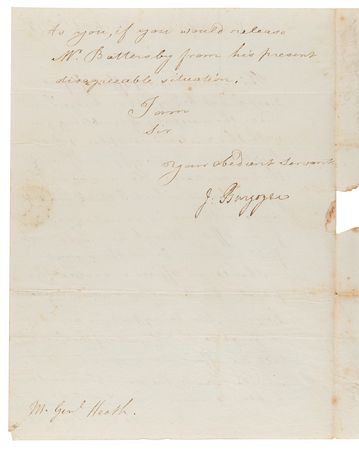 to you, if you would release
Mr. Battersby from his present
disagreeable situation.
I am
Sir
Your obedient Servant
J: Burgoyne
M. Genl. Heath.